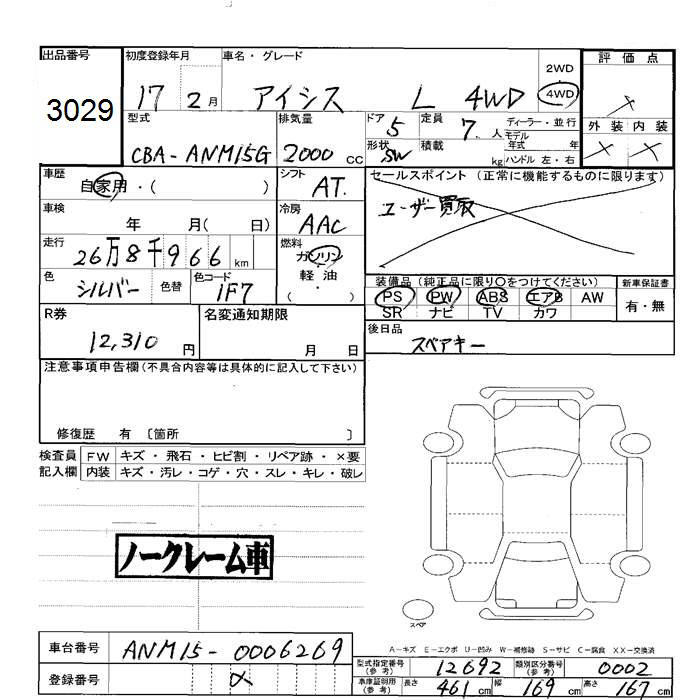 出品番号
3029
初度登録年月
17 2月
車名・グレード
アイシス L 4WD
2WD
4WD
評価点
×
外装 内装
× ×
型式
CBA-ANM15G
排気量
2000 CC
ドア
5
定員
7. 人
ディーラー・並行
モデル
年式 年
形状
SW
積載 kg
ハンドル 左・右
車歴
自家用・( )
シフト
AT.
セールスポイント (正常に機能するものに限ります)
ユーザー買取
車検
年 月( 日)
冷房
AAC
走行
26万8千966 km
燃料
ガソリン
軽油
( )
色
シルバー
色替
色コード
1F7
装備品 (純正品に限り○をつけてください)
PS PW ABS エアB AW
SR ナビ TV カワ
新車保証書
有・無
R券
12,310 円
名変通知期限
月 日
後日品
スペアキー
注意事項申告欄 (不具合内容等は具体的に記入して下さい)
修復歴 有 〔箇所 〕
検査員
記入欄
FW キズ・飛石・ヒビ割・リペア跡・×要
内装 キズ・汚レ・コゲ・穴・スレ・キレ・破レ
ノークレーム車
スペア
A-キズ E-エクボ U-凹み W-補修跡 S-サビ C-腐食 XX-交換済
車台番号
ANM15-0006269
登録番号
×
型式指定番号
(参考)
12692
類別区分番号
(参考)
0002
車庫証明用
(参考)
長さ 461 cm
幅 169 cm
高さ 167 cm